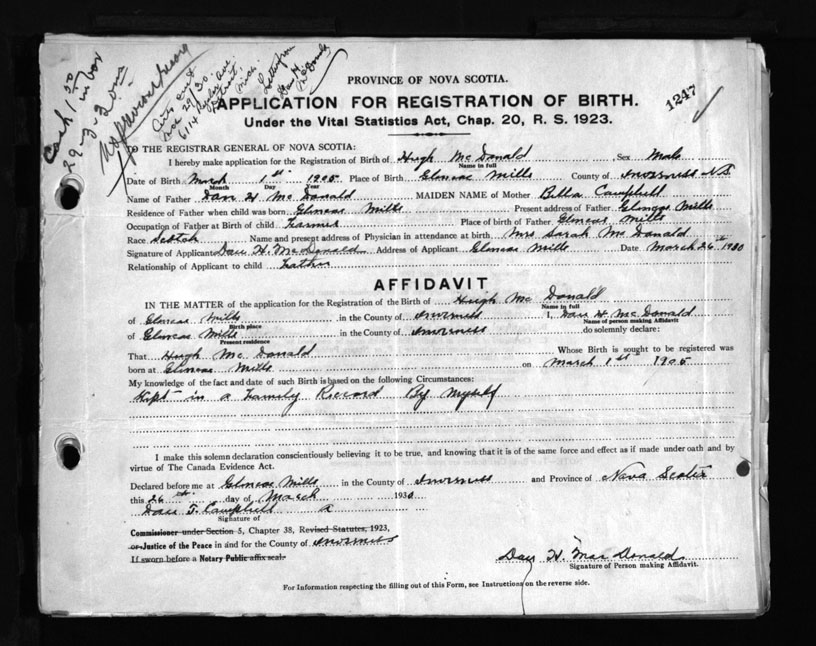 Cash 1.00
in box
29-3-30
No previous record
Cert. and
Dec 29/30.
6114
Detroit,
Mich.
Dan H
McDonald
1247
PROVINCE OF NOVA SCOTIA.
APPLICATION FOR REGISTRATION OF BIRTH.
Under the Vital Statistics Act, Chap. 20, R. S. 1923.
TO THE REGISTRAR GENERAL OF NOVA SCOTIA:
I hereby make application for the Registration of Birth of Hugh McDonald Sex Male
Name in full
Date of Birth March 1st 1905 Place of Birth Glencoe Mills County of Inverness NS
Month Day Year
Name of Father Dan H McDonald MAIDEN NAME of Mother Bella Campbell
Residence of Father when child was born Glencoe Mills Present address of Father Glencoe Mills
Occupation of Father at Birth of Child Farmer Place of birth of Father Glencoe Mills
Race Scotch Name and present address of Physician in attendance at birth Mrs Sarah McDonald
Signature of Applicant Dan H. McDonald Address of Applicant Glencoe Mills Date March 26th 1930
Relationship of Applicant to child Father
AFFIDAVIT
IN THE MATTER of the application for the Registration of the Birth of Hugh McDonald
Name in full
of Glencoe Mills in the County of Inverness I, Dan H McDonald
Birth place Name of person making Affidavit
of Glencoe Mills in the County of Inverness do solemnly declare:
Present residence
That Hugh McDonald Whose Birth is sought to be registered was
born at Glencoe Mills on March 1st 1905
My knowledge of the fact and date of such Birth is based on the following Circumstances:
Kept in a Family Record By Myself
I make this solemn declaration conscientiously believing it to be true, and knowing that it is of the same force and effect as if made under oath and by
virtue of The Canada Evidence Act.
Declared before me at Glencoe Mills in the County of Inverness and Province of Nova Scotia
this 26th day of March 1930
Dan F. Campbell
Signature of
Commissioner under Section 5, Chapter 38, Revised Statutes, 1923,
or Justice of the Peace in and for the County of Inverness
If sworn before a Notary Public affix seal.
Dan H. MacDonald
Signature of Person making Affidavit.
For Information respecting the filling out of this Form, see Instructions on the reverse side.